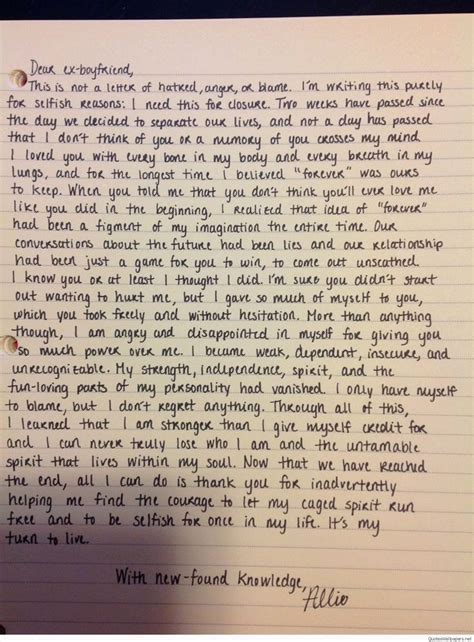 Dear ex-boyfriend,
This is not a letter of hatred, anger, or blame. I'm writing this purely
for selfish reasons: I need this for closure. Two weeks have passed since
the day we decided to separate our lives, and not a day has passed
that I don't think of you or a memory of you crosses my mind.
I loved you with every bone in my body and every breath in my
lungs, and for the longest time I believed "forever" was ours
to keep. When you told me that you don't think you'll ever love me
like you did in the beginning, I realized that idea of "forever"
had been a figment of my imagination the entire time. Our
conversations about the future had been lies and our relationship
had been just a game for you to win, to come out unscathed.
I know you or at least I thought I did. I'm sure you didn't start
out wanting to hurt me, but I gave so much of myself to you,
which you took freely and without hesitation. More than anything
though, I am angry and disappointed in myself for giving you
so much power over me. I became weak, dependent, insecure, and
unrecognizable. My strength, independence, spirit, and the
fun-loving parts of my personality had vanished. I only have myself
to blame, but I don't regret anything. Through all of this,
I learned that I am stronger than I give myself credit for
and I can never truly lose who I am and the untamable
spirit that lives within my soul. Now that we have reached
the end, all I can do is thank you for inadvertently
helping me find the courage to let my caged spirit run
free and to be selfish for once in my life. It's my
turn to live.
With new-found knowledge,
Allie
QuotesWallpapers.net